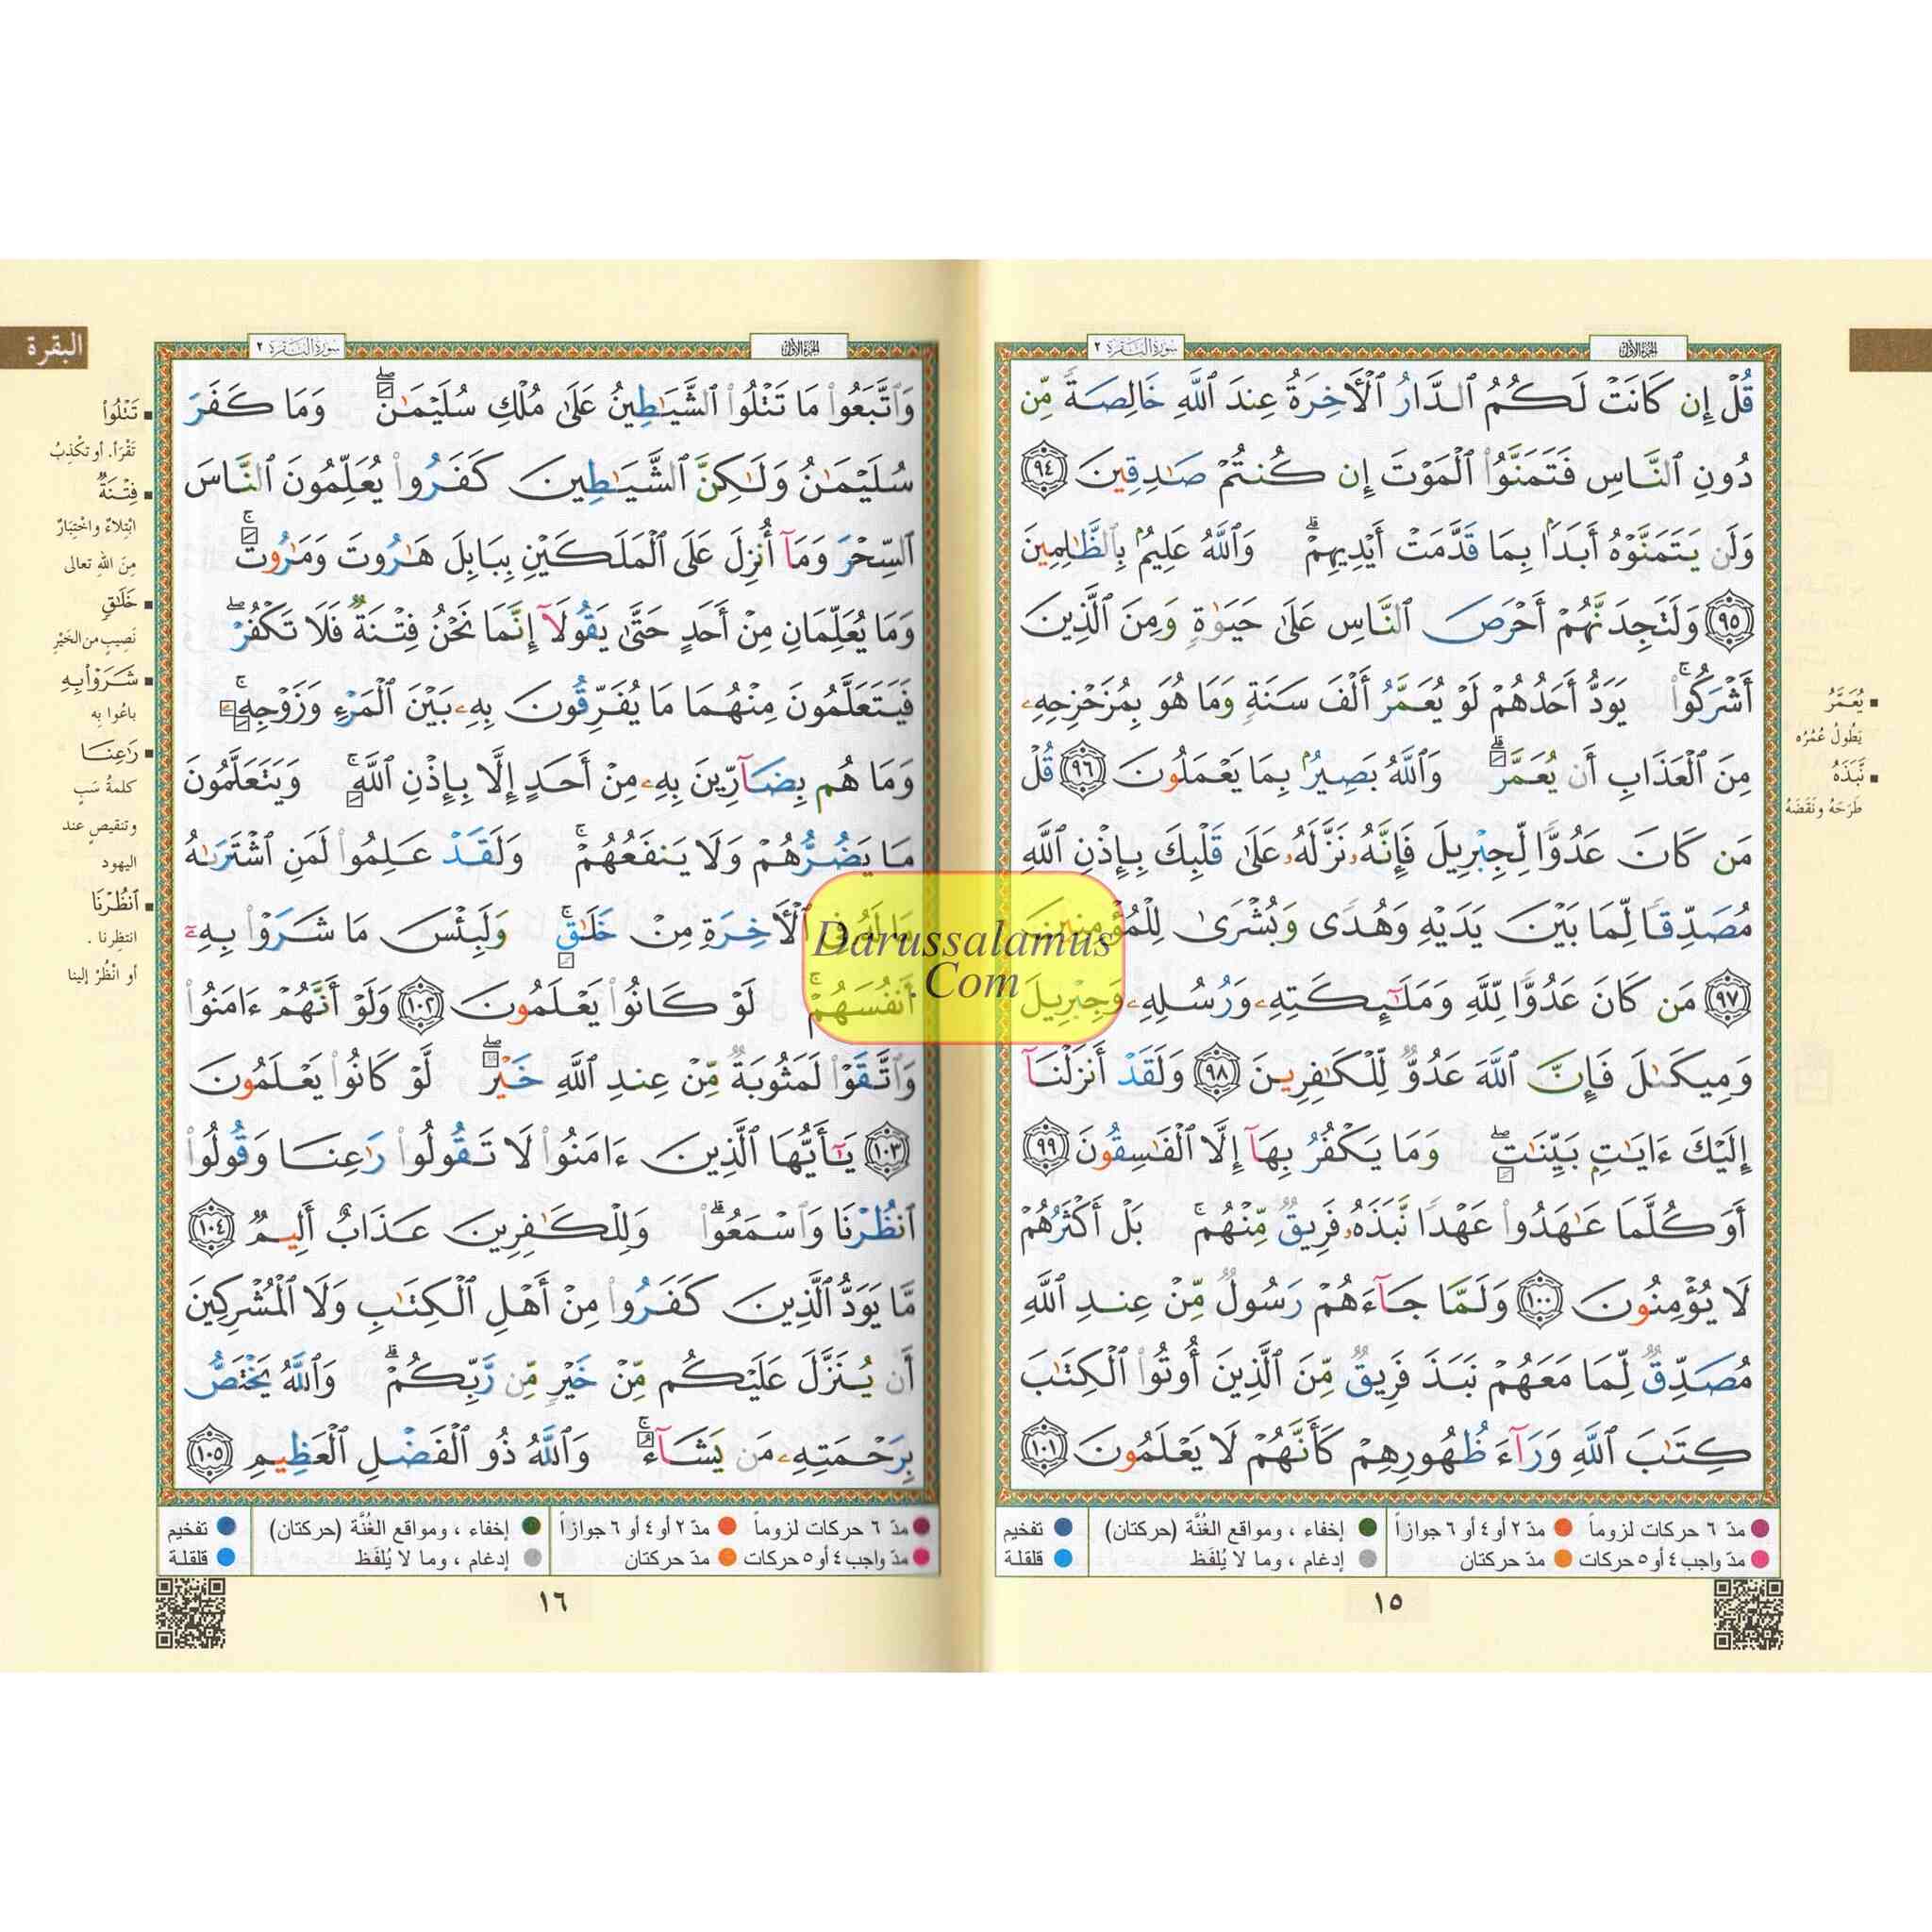 الجزء الأول
سورة البقرة ٢
قُلْ إِن كَانَتْ لَكُمُ ٱلدَّارُ ٱلْأَخِرَةُ عِندَ ٱللَّهِ خَالِصَةً مِّن
دُونِ ٱلنَّاسِ فَتَمَنَّوُا۟ ٱلْمَوْتَ إِن كُنتُمْ صَـٰدِقِينَ ٩٤
وَلَن يَتَمَنَّوْهُ أَبَدًۢا بِمَا قَدَّمَتْ أَيْدِيهِمْ ۗ وَٱللَّهُ عَلِيمٌۢ بِٱلظَّـٰلِمِينَ
٩٥ وَلَتَجِدَنَّهُمْ أَحْرَصَ ٱلنَّاسِ عَلَىٰ حَيَوٰةٍ وَمِنَ ٱلَّذِينَ
أَشْرَكُوا۟ ۚ يَوَدُّ أَحَدُهُمْ لَوْ يُعَمَّرُ أَلْفَ سَنَةٍ وَمَا هُوَ بِمُزَحْزِحِهِۦ
مِنَ ٱلْعَذَابِ أَن يُعَمَّرَ ۗ وَٱللَّهُ بَصِيرٌۢ بِمَا يَعْمَلُونَ ٩٦ قُلْ
مَن كَانَ عَدُوًّا لِّجِبْرِيلَ فَإِنَّهُۥ نَزَّلَهُۥ عَلَىٰ قَلْبِكَ بِإِذْنِ ٱللَّهِ
مُصَدِّقًا لِّمَا بَيْنَ يَدَيْهِ وَهُدًى وَبُشْرَىٰ لِلْمُؤْمِنِينَ
٩٧ مَن كَانَ عَدُوًّا لِّلَّهِ وَمَلَـٰٓئِكَتِهِۦ وَرُسُلِهِۦ وَجِبْرِيلَ
وَمِيكَىٰلَ فَإِنَّ ٱللَّهَ عَدُوٌّ لِّلْكَـٰفِرِينَ ٩٨ وَلَقَدْ أَنزَلْنَآ
إِلَيْكَ ءَايَـٰتٍۭ بَيِّنَـٰتٍ ۖ وَمَا يَكْفُرُ بِهَآ إِلَّا ٱلْفَـٰسِقُونَ ٩٩
أَوَكُلَّمَا عَـٰهَدُوا۟ عَهْدًا نَّبَذَهُۥ فَرِيقٌ مِّنْهُم ۚ بَلْ أَكْثَرُهُمْ
لَا يُؤْمِنُونَ ١٠٠ وَلَمَّا جَآءَهُمْ رَسُولٌ مِّنْ عِندِ ٱللَّهِ
مُصَدِّقٌ لِّمَا مَعَهُمْ نَبَذَ فَرِيقٌ مِّنَ ٱلَّذِينَ أُوتُوا۟ ٱلْكِتَـٰبَ
كِتَـٰبَ ٱللَّهِ وَرَآءَ ظُهُورِهِمْ كَأَنَّهُمْ لَا يَعْلَمُونَ ١٠١
يُعَمَّرُ
يَطُولُ عُمُرُه
نَّبَذَهُ
طَرَحَهُ ونَقَضَهُ
مدّ ٦ حركات لزوماً مدّ ٢ أو ٤ أو ٦ جوازاً إخفاء ، ومواقع الغُنَّة (حركتان) تفخيم
مدّ واجب ٤ أو ٥ حركات مدّ حركتان إدغام ، وما لا يُلفَظ قلقلة
١٥
البقرة
الجزء الأول
سورة البقرة ٢
وَٱتَّبَعُوا۟ مَا تَتْلُوا۟ ٱلشَّيَـٰطِينُ عَلَىٰ مُلْكِ سُلَيْمَـٰنَ ۖ وَمَا كَفَرَ
سُلَيْمَـٰنُ وَلَـٰكِنَّ ٱلشَّيَـٰطِينَ كَفَرُوا۟ يُعَلِّمُونَ ٱلنَّاسَ
ٱلسِّحْرَ وَمَآ أُنزِلَ عَلَى ٱلْمَلَكَيْنِ بِبَابِلَ هَـٰرُوتَ وَمَـٰرُوتَ ۚ
وَمَا يُعَلِّمَانِ مِنْ أَحَدٍ حَتَّىٰ يَقُولَآ إِنَّمَا نَحْنُ فِتْنَةٌ فَلَا تَكْفُرْ ۖ
فَيَتَعَلَّمُونَ مِنْهُمَا مَا يُفَرِّقُونَ بِهِۦ بَيْنَ ٱلْمَرْءِ وَزَوْجِهِۦ ۚ
وَمَا هُم بِضَآرِّينَ بِهِۦ مِنْ أَحَدٍ إِلَّا بِإِذْنِ ٱللَّهِ ۚ وَيَتَعَلَّمُونَ
مَا يَضُرُّهُمْ وَلَا يَنفَعُهُمْ ۚ وَلَقَدْ عَلِمُوا۟ لَمَنِ ٱشْتَرَىٰهُ
مَا لَهُۥ فِى ٱلْأَخِرَةِ مِنْ خَلَـٰقٍ ۚ وَلَبِئْسَ مَا شَرَوْا۟ بِهِۦٓ
أَنفُسَهُمْ ۚ لَوْ كَانُوا۟ يَعْلَمُونَ ١٠٢ وَلَوْ أَنَّهُمْ ءَامَنُوا۟
وَٱتَّقَوْا۟ لَمَثُوبَةٌ مِّنْ عِندِ ٱللَّهِ خَيْرٌ ۖ لَّوْ كَانُوا۟ يَعْلَمُونَ
١٠٣ يَـٰٓأَيُّهَا ٱلَّذِينَ ءَامَنُوا۟ لَا تَقُولُوا۟ رَٰعِنَا وَقُولُوا۟
ٱنظُرْنَا وَٱسْمَعُوا۟ ۗ وَلِلْكَـٰفِرِينَ عَذَابٌ أَلِيمٌ ١٠٤
مَّا يَوَدُّ ٱلَّذِينَ كَفَرُوا۟ مِنْ أَهْلِ ٱلْكِتَـٰبِ وَلَا ٱلْمُشْرِكِينَ
أَن يُنَزَّلَ عَلَيْكُم مِّنْ خَيْرٍ مِّن رَّبِّكُمْ ۗ وَٱللَّهُ يَخْتَصُّ
بِرَحْمَتِهِۦ مَن يَشَآءُ ۚ وَٱللَّهُ ذُو ٱلْفَضْلِ ٱلْعَظِيمِ ١٠٥
تَتْلُوا۟
تَقْرَأ. أو تكْذِبُ
فِتْنَةٌ
ابْتِلاءٌ واخْتِبَارٌ
مِنَ اللهِ تعالى
خَلَاقٍ
نَصِيبٍ من الخَيْرِ
شَرَوْا۟ بِهِ
باعُوا بِه
رَٰعِنَا
كلمةُ سَبٍ
وتنقيصٍ عند
اليهود
ٱنظُرْنَا
انتظِرنا .
أو انْظُرْ إلينا
مدّ ٦ حركات لزوماً مدّ ٢ أو ٤ أو ٦ جوازاً إخفاء ، ومواقع الغُنَّة (حركتان) تفخيم
مدّ واجب ٤ أو ٥ حركات مدّ حركتان إدغام ، وما لا يُلفَظ قلقلة
١٦
Darussalamus
Com